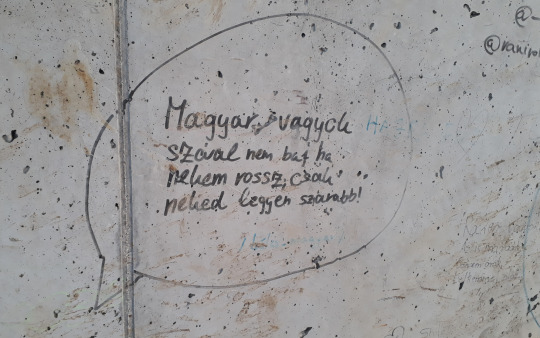 Magyar vagyok
szóval nem baj ha
nekem rossz, csak
neked legyen szarabb!